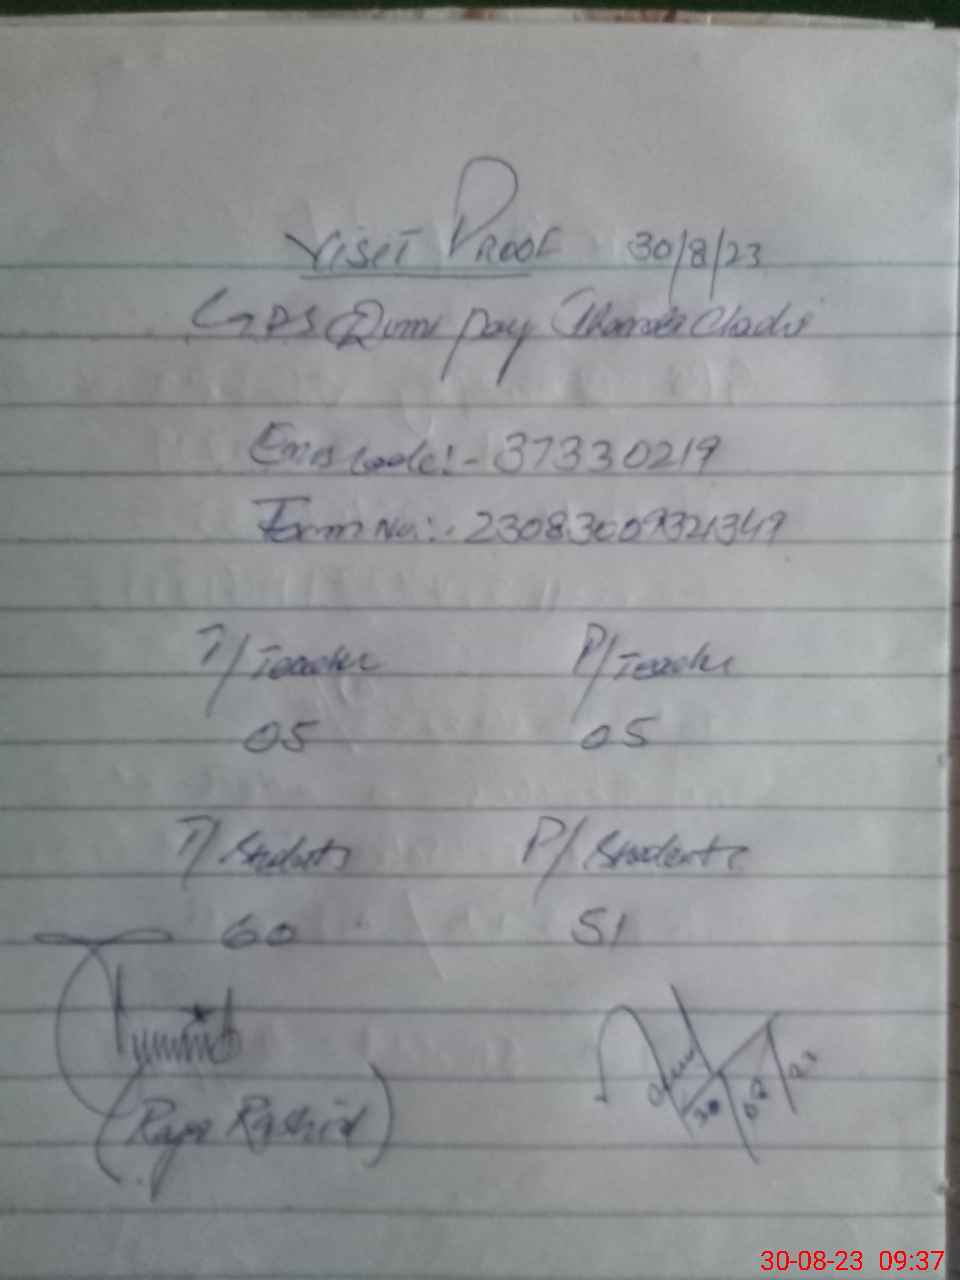 VISIT PROOF 30/8/23
GPS Dumi Pay
Emis Code:- 37330219
Form No:- 23083009321349
T/Teacher P/Teacher
05 05
T/Students P/Students
60 51
(Raja Rashid) 30/08/23
30-08-23 09:37